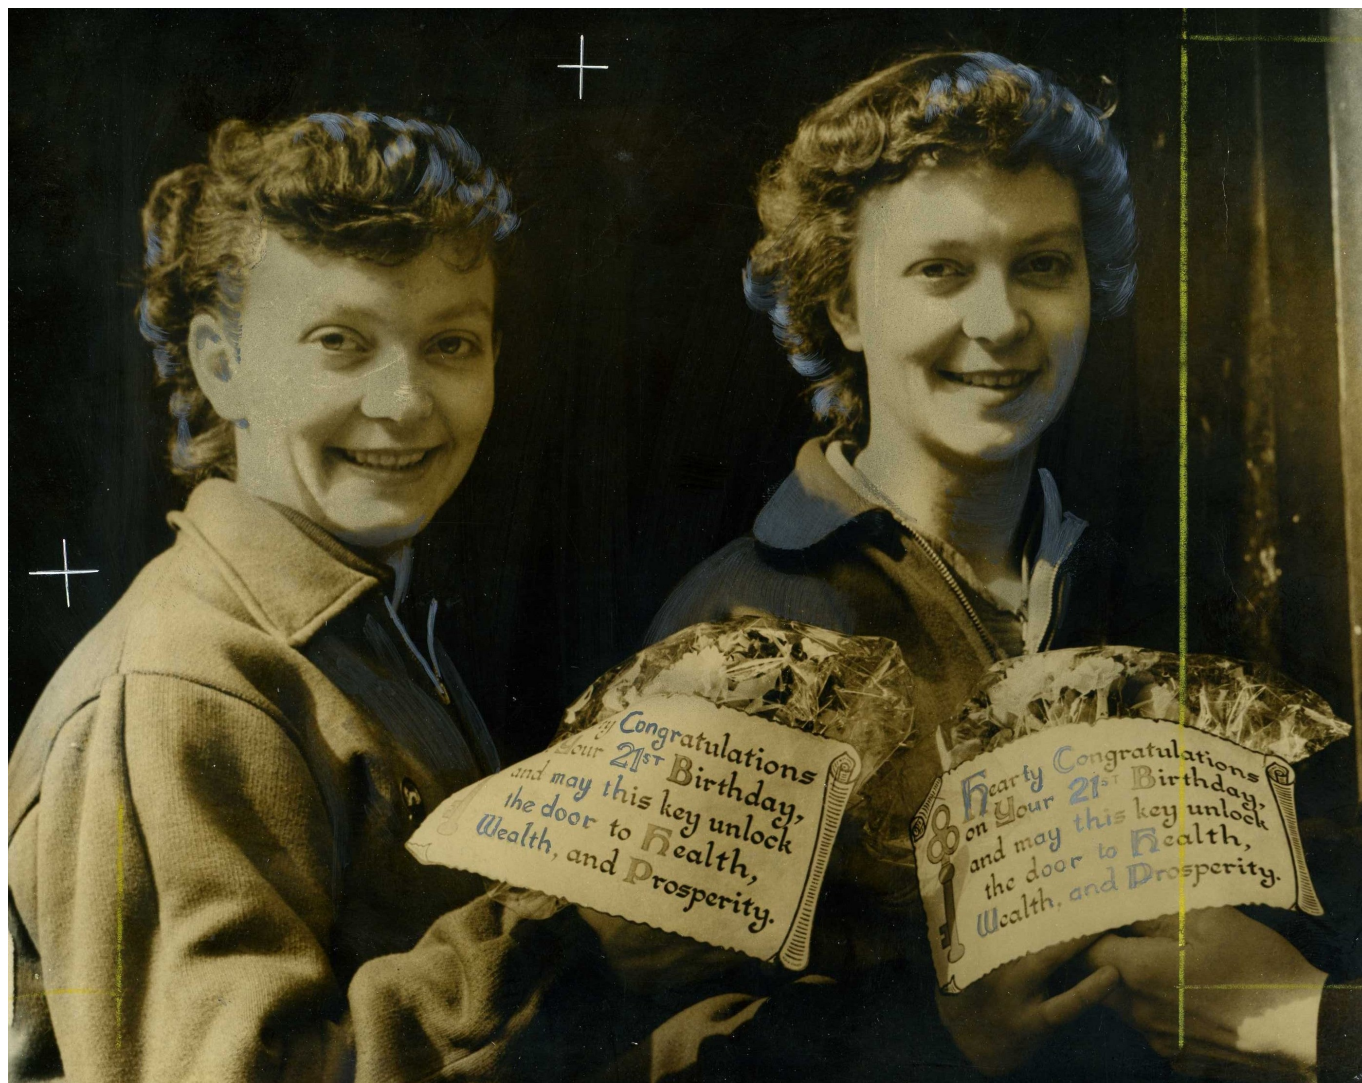 Congratulations
Your 21ST Birthday,
and may this key unlock
the door to Health,
Wealth, and Prosperity.
Hearty Congratulations
on Your 21ST Birthday,
and may this key unlock
the door to Health,
Wealth, and Prosperity.